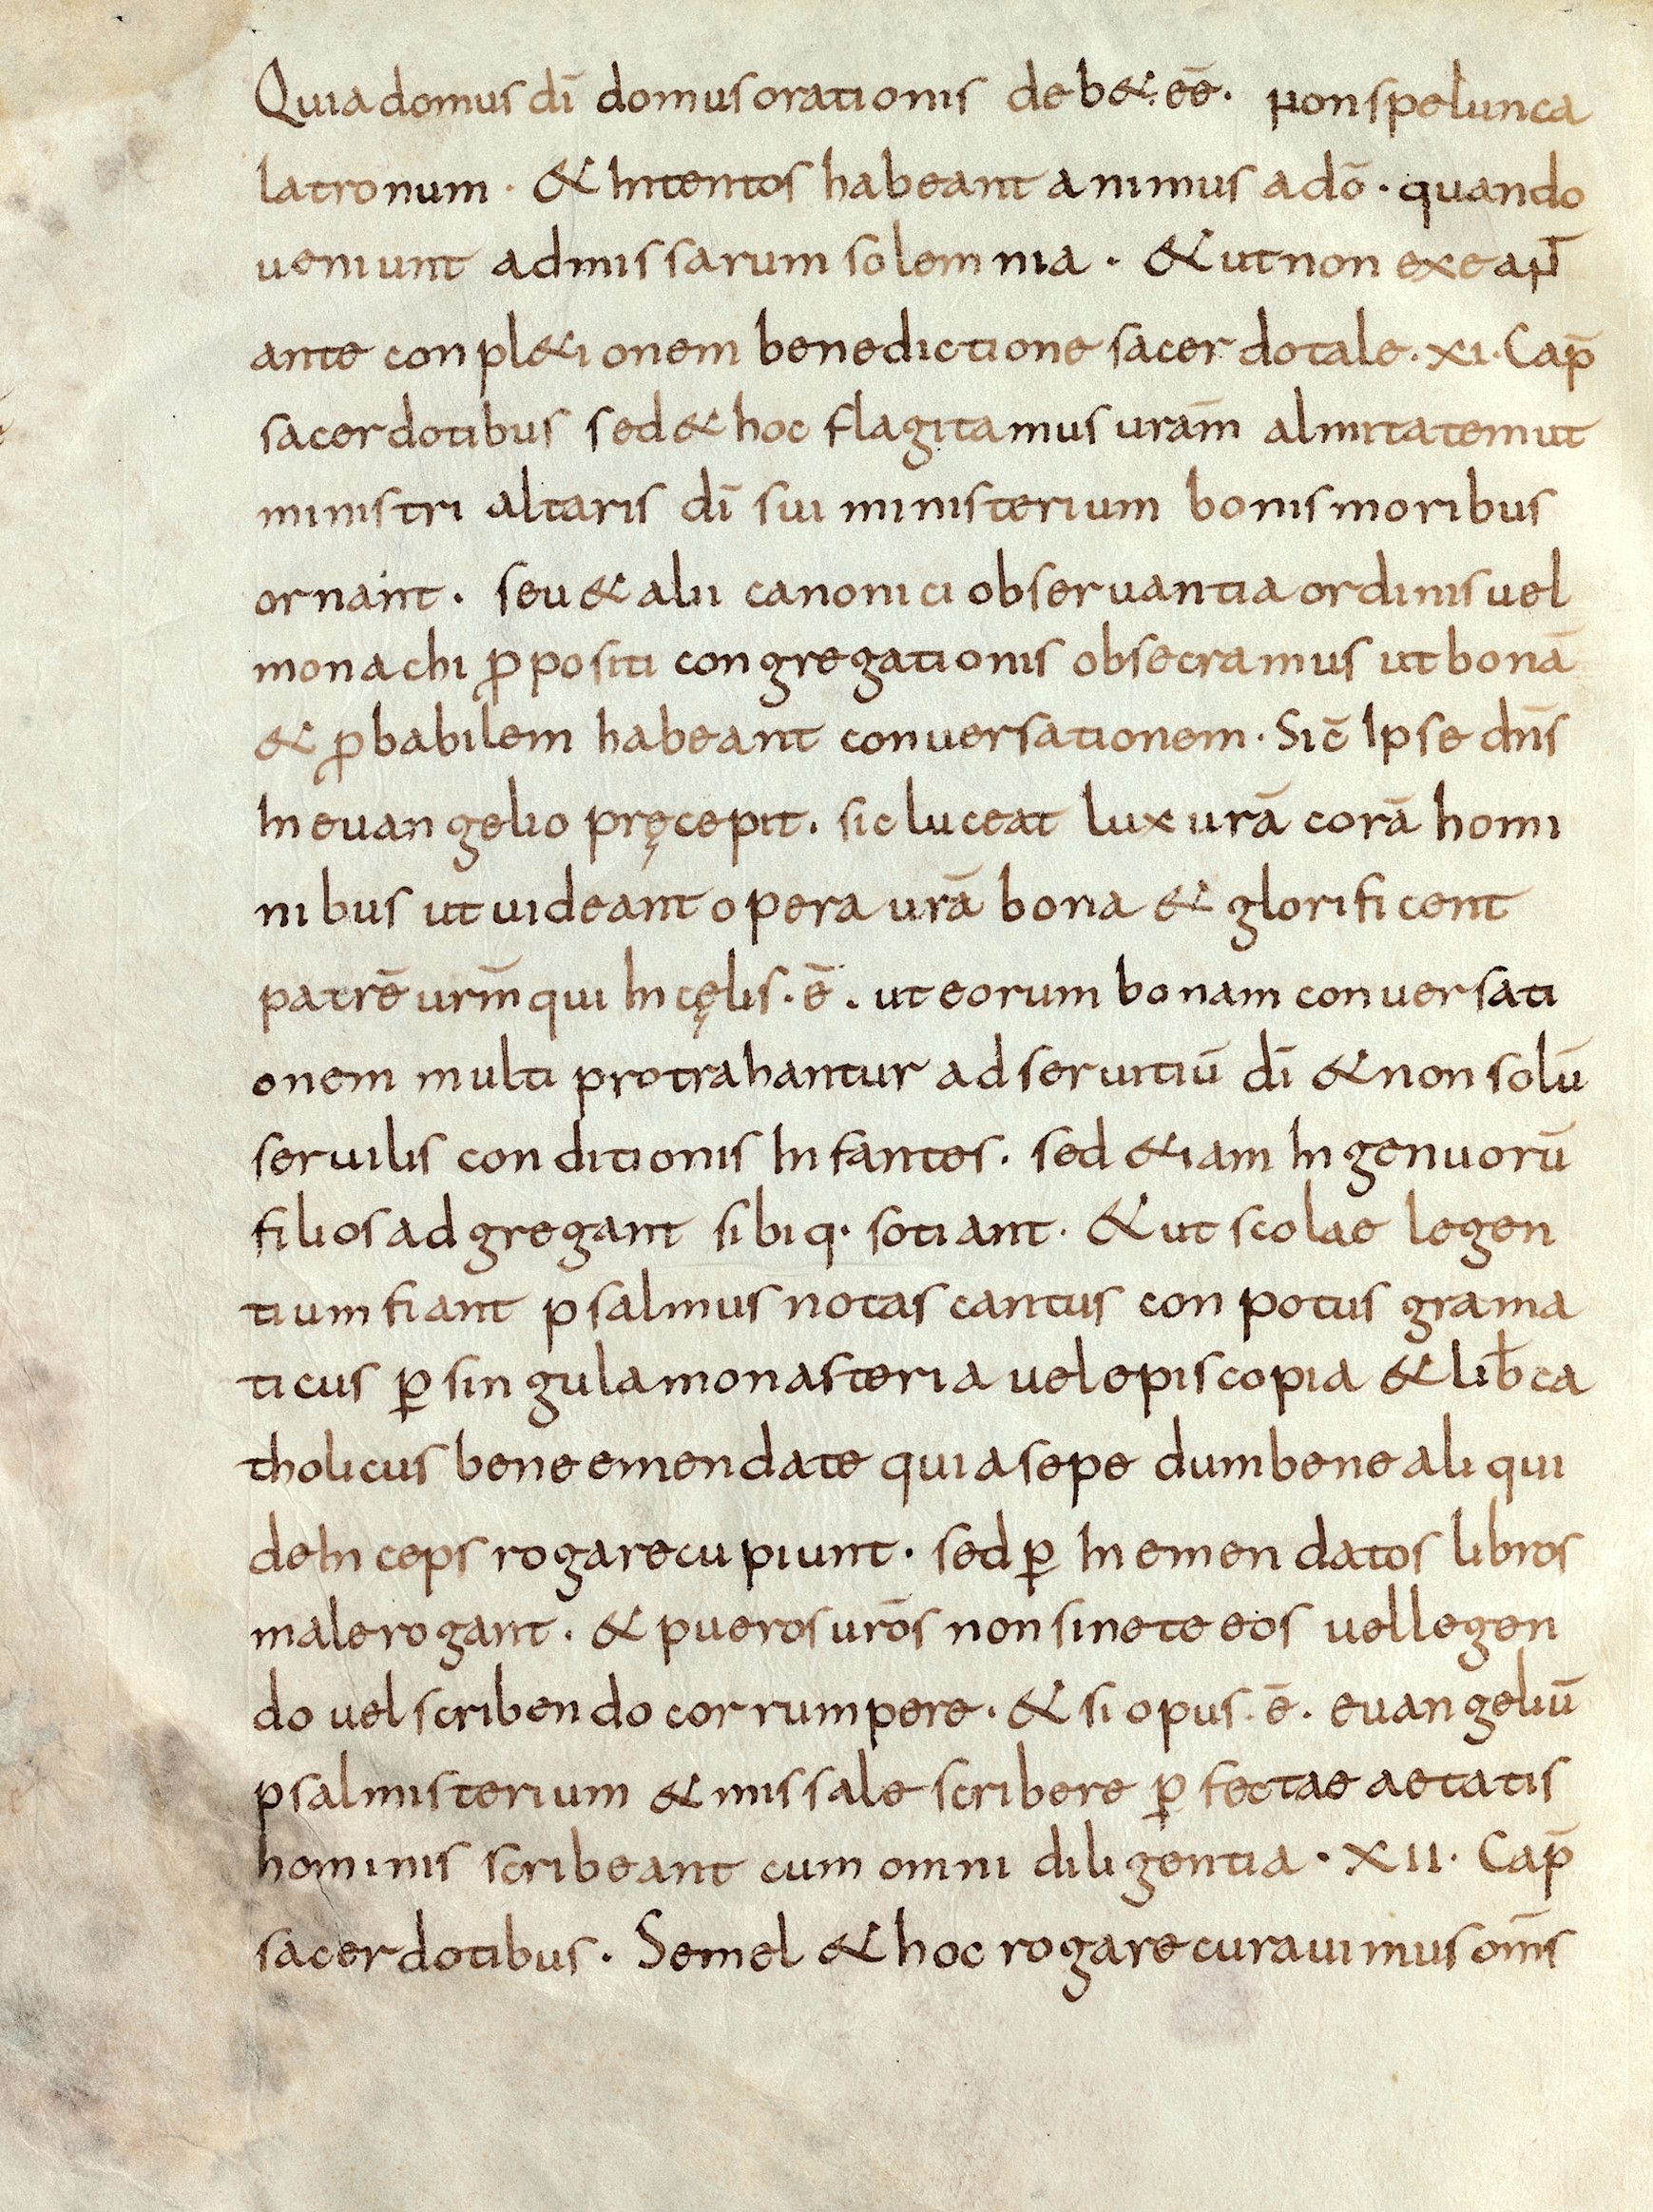 Quia domus dī domus orationis deb& eē. Non spelunca
latronum · & Intentos habeant animus ad dō · quando
ueniunt ad missarum solemnia · & ut non exeaNT
ante conpl&ionem benedictione sacerdotale · XI · Cap̄
sacerdotibus sed & hoc flagitamus urām almitatem ut
ministri altaris dī sui ministerium bonis moribus
ornaint · seu & alii canonici obseruantia ordinis uel
monachi ꝓpositi congregationis obsecramus ut bonā
& ꝓbabilem habeant conuersationem · Sic̄ Ipse dn̄s
In euangelio pręcepit · sic luceat lux urā corā homi
nibus ut uideant opera urā bona & glorificent
patrē urm̄ qui In cęlis · ē · ut eorum bonam conuersati
onem multi protrahantur ad seruitiū dī & non solū
seruilis conditionis Infantes · sed &iam Ingenuorū
filios adgregant sibiq · sotiant · & ut scolae legen
tium fiant psalmus notas cantus conpotus grama
ticus ꝑ singula monasteria uel episcopia & lib̄ ca
tholicus bene emendate quia sepe dum bene aliqui
deInceps rogare cupiunt · sed ꝑ Inemendatos libros
male rogant · & pueros urōs non sinete eos uel legen
do uel scribendo corrumpere · & si opus · ē · euangeliū
psalmisterium & missale scribere ꝑfectae aetatis
hominis scribeant cum omni diligentia · XII · Cap̄
sacerdotibus · Semel & hoc rogare curauimus om̄s